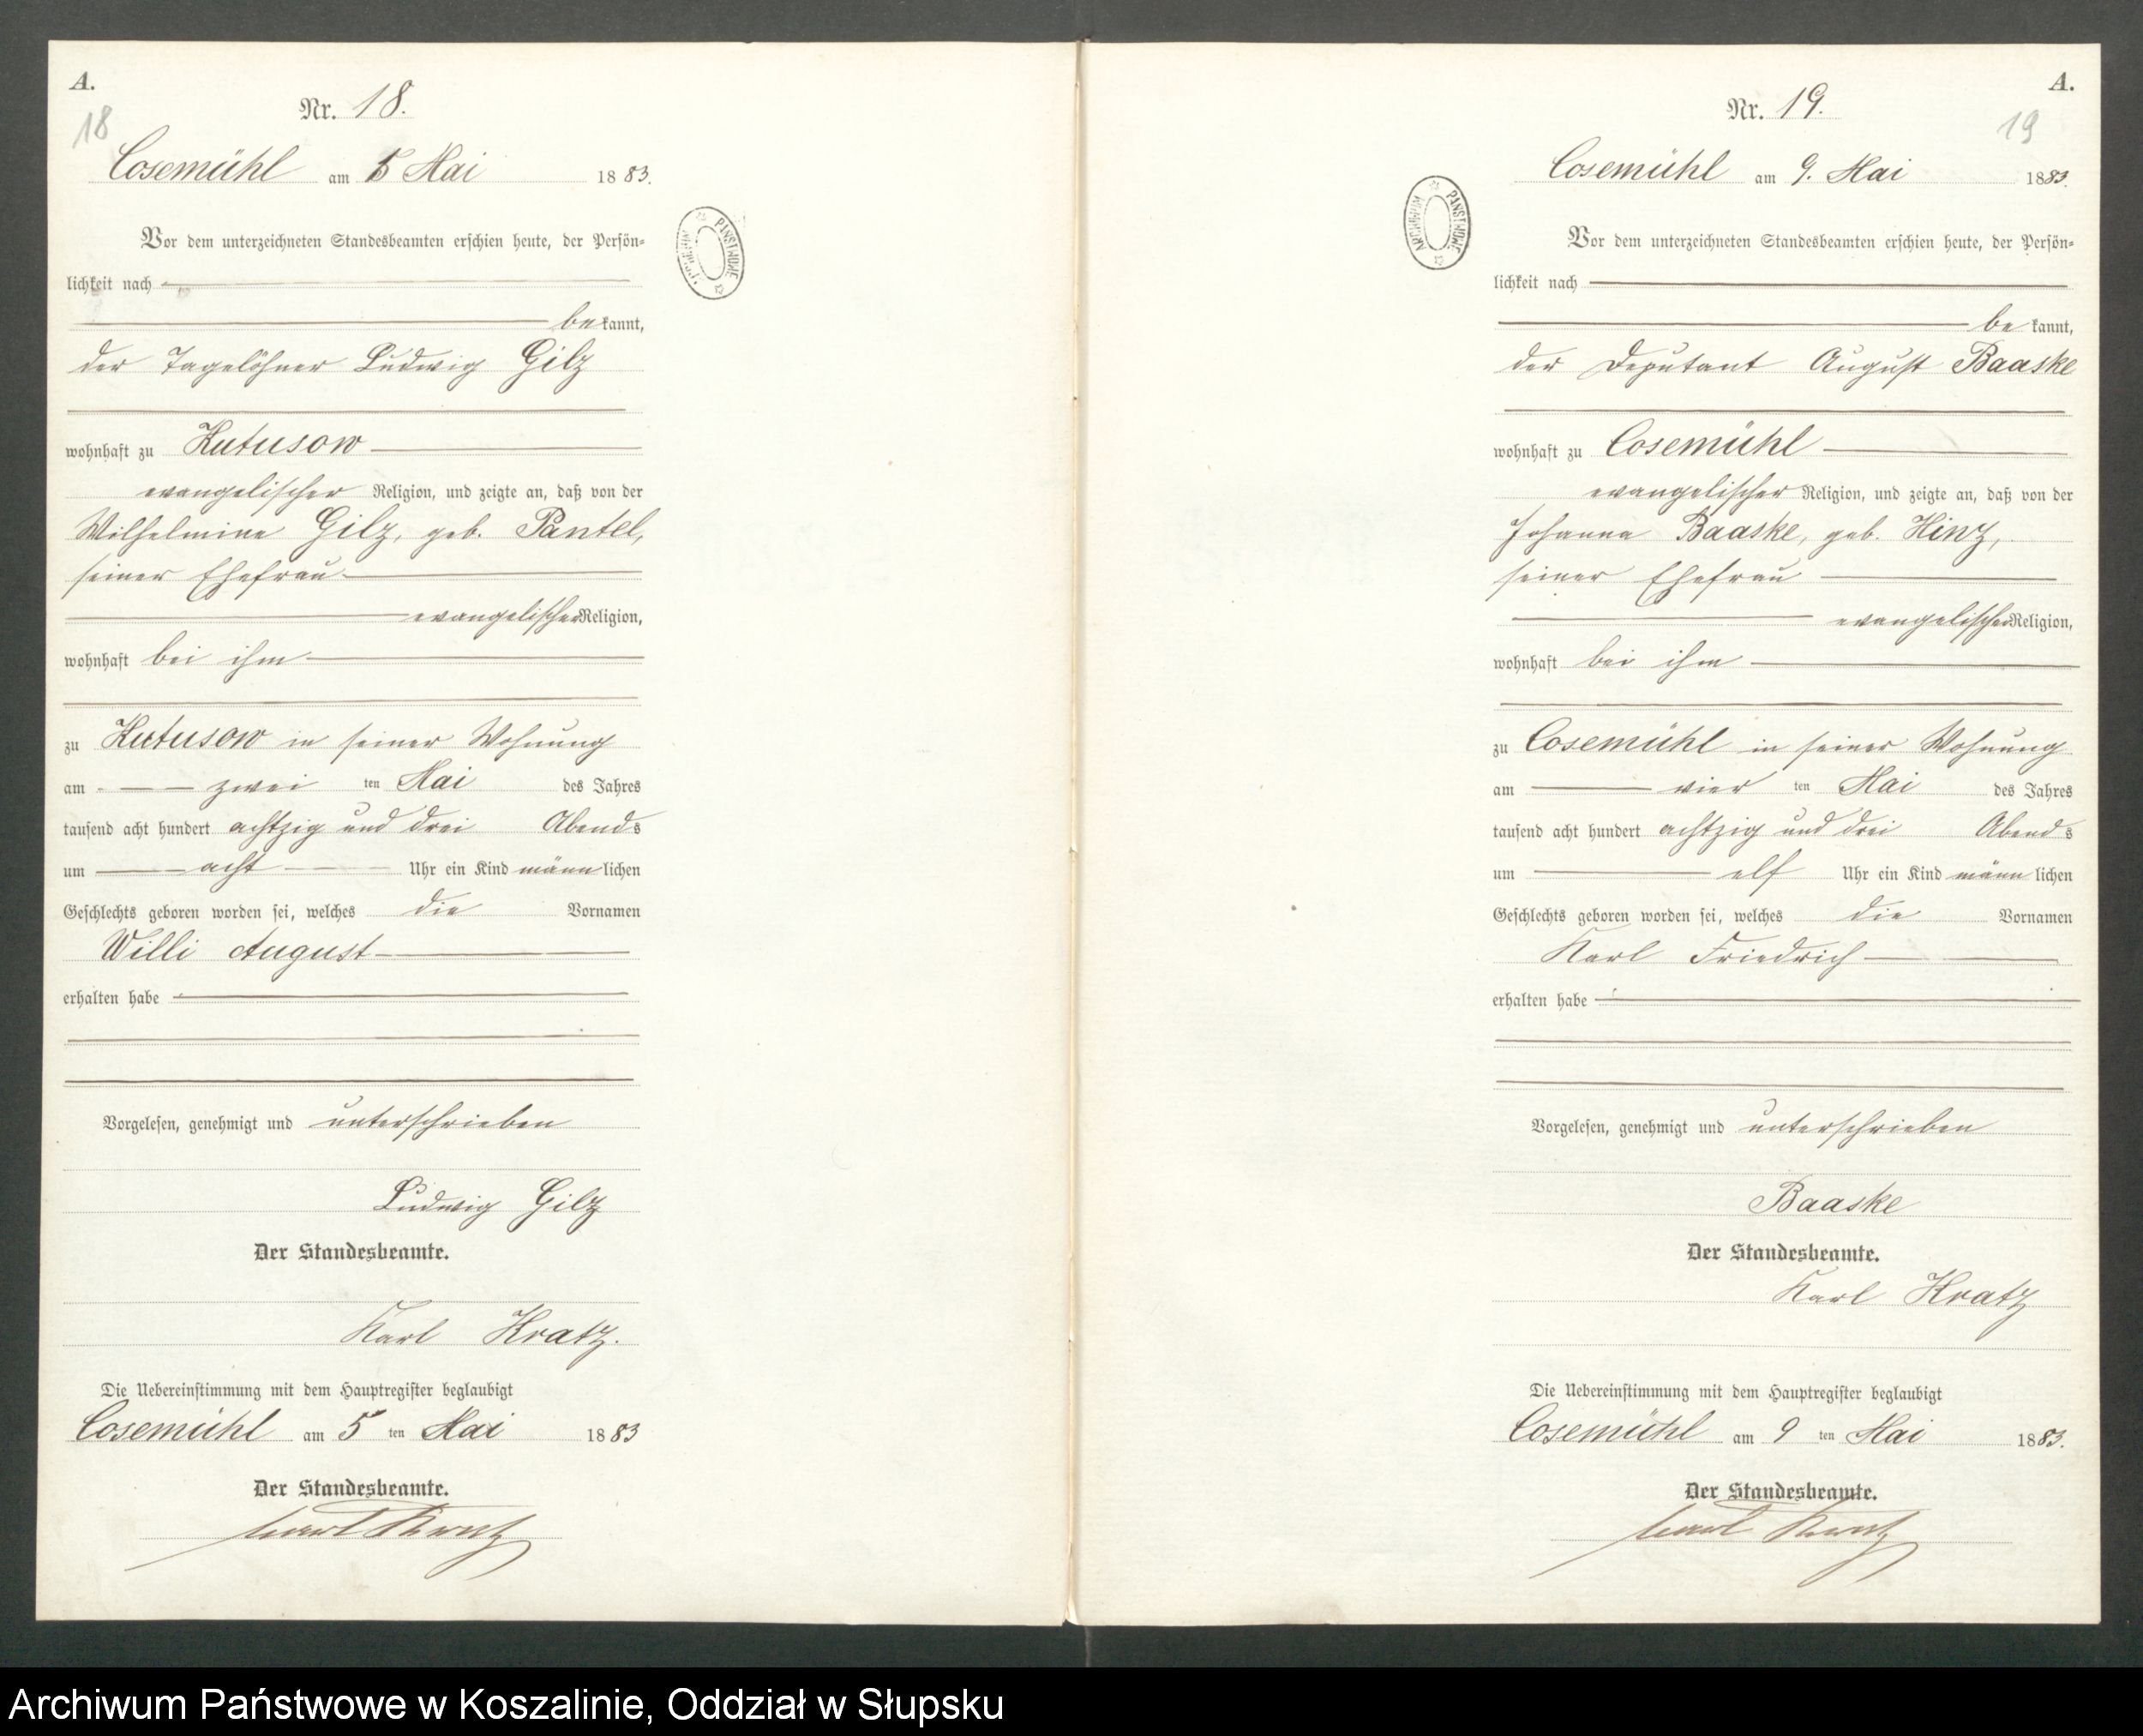 A.
18
Nr. 18.
Cosemühl am 5 Mai 1883.
Vor dem unterzeichneten Standesbeamten erschien heute, der Persön=
lichkeit nach
bekannt,
der Tagelöhner Ludwig Gilz
wohnhaft zu Kutusow
evangelischer Religion, und zeigte an, daß von der
Wilhelmine Gilz, geb. Pantel,
seiner Ehefrau
evangelischer Religion,
wohnhaft bei ihm
zu Kutusow in seiner Wohnung
am zwei ten Mai des Jahres
tausend acht hundert achtzig und drei Abends
um acht Uhr ein Kind männlichen
Geschlechts geboren worden sei, welches die Vornamen
Willi August
erhalten habe
Vorgelesen, genehmigt und unterschrieben
Ludwig Gilz
Der Standesbeamte.
Karl Kratz.
Die Uebereinstimmung mit dem Hauptregister beglaubigt
Cosemühl am 5 ten Mai 1883
Der Standesbeamte.
Carl Kratz
ARCHIWUM PAŃSTWOWE
A.
19
Nr. 19.
Cosemühl am 9. Mai 1883.
Vor dem unterzeichneten Standesbeamten erschien heute, der Persön=
lichkeit nach
bekannt,
der Deputant August Baaske
wohnhaft zu Cosemühl
evangelischer Religion, und zeigte an, daß von der
Johanna Baaske, geb. Hinz,
seiner Ehefrau
evangelischer Religion,
wohnhaft bei ihm
zu Cosemühl in seiner Wohnung
am vier ten Mai des Jahres
tausend acht hundert achtzig und drei Abends
um elf Uhr ein Kind männlichen
Geschlechts geboren worden sei, welches die Vornamen
Karl Friedrich
erhalten habe
Vorgelesen, genehmigt und unterschrieben
Baaske
Der Standesbeamte.
Karl Kratz
Die Uebereinstimmung mit dem Hauptregister beglaubigt
Cosemühl am 9 ten Mai 1883.
Der Standesbeamte.
Carl Kratz
ARCHIWUM PAŃSTWOWE
Archiwum Państwowe w Koszalinie, Oddział w Słupsku